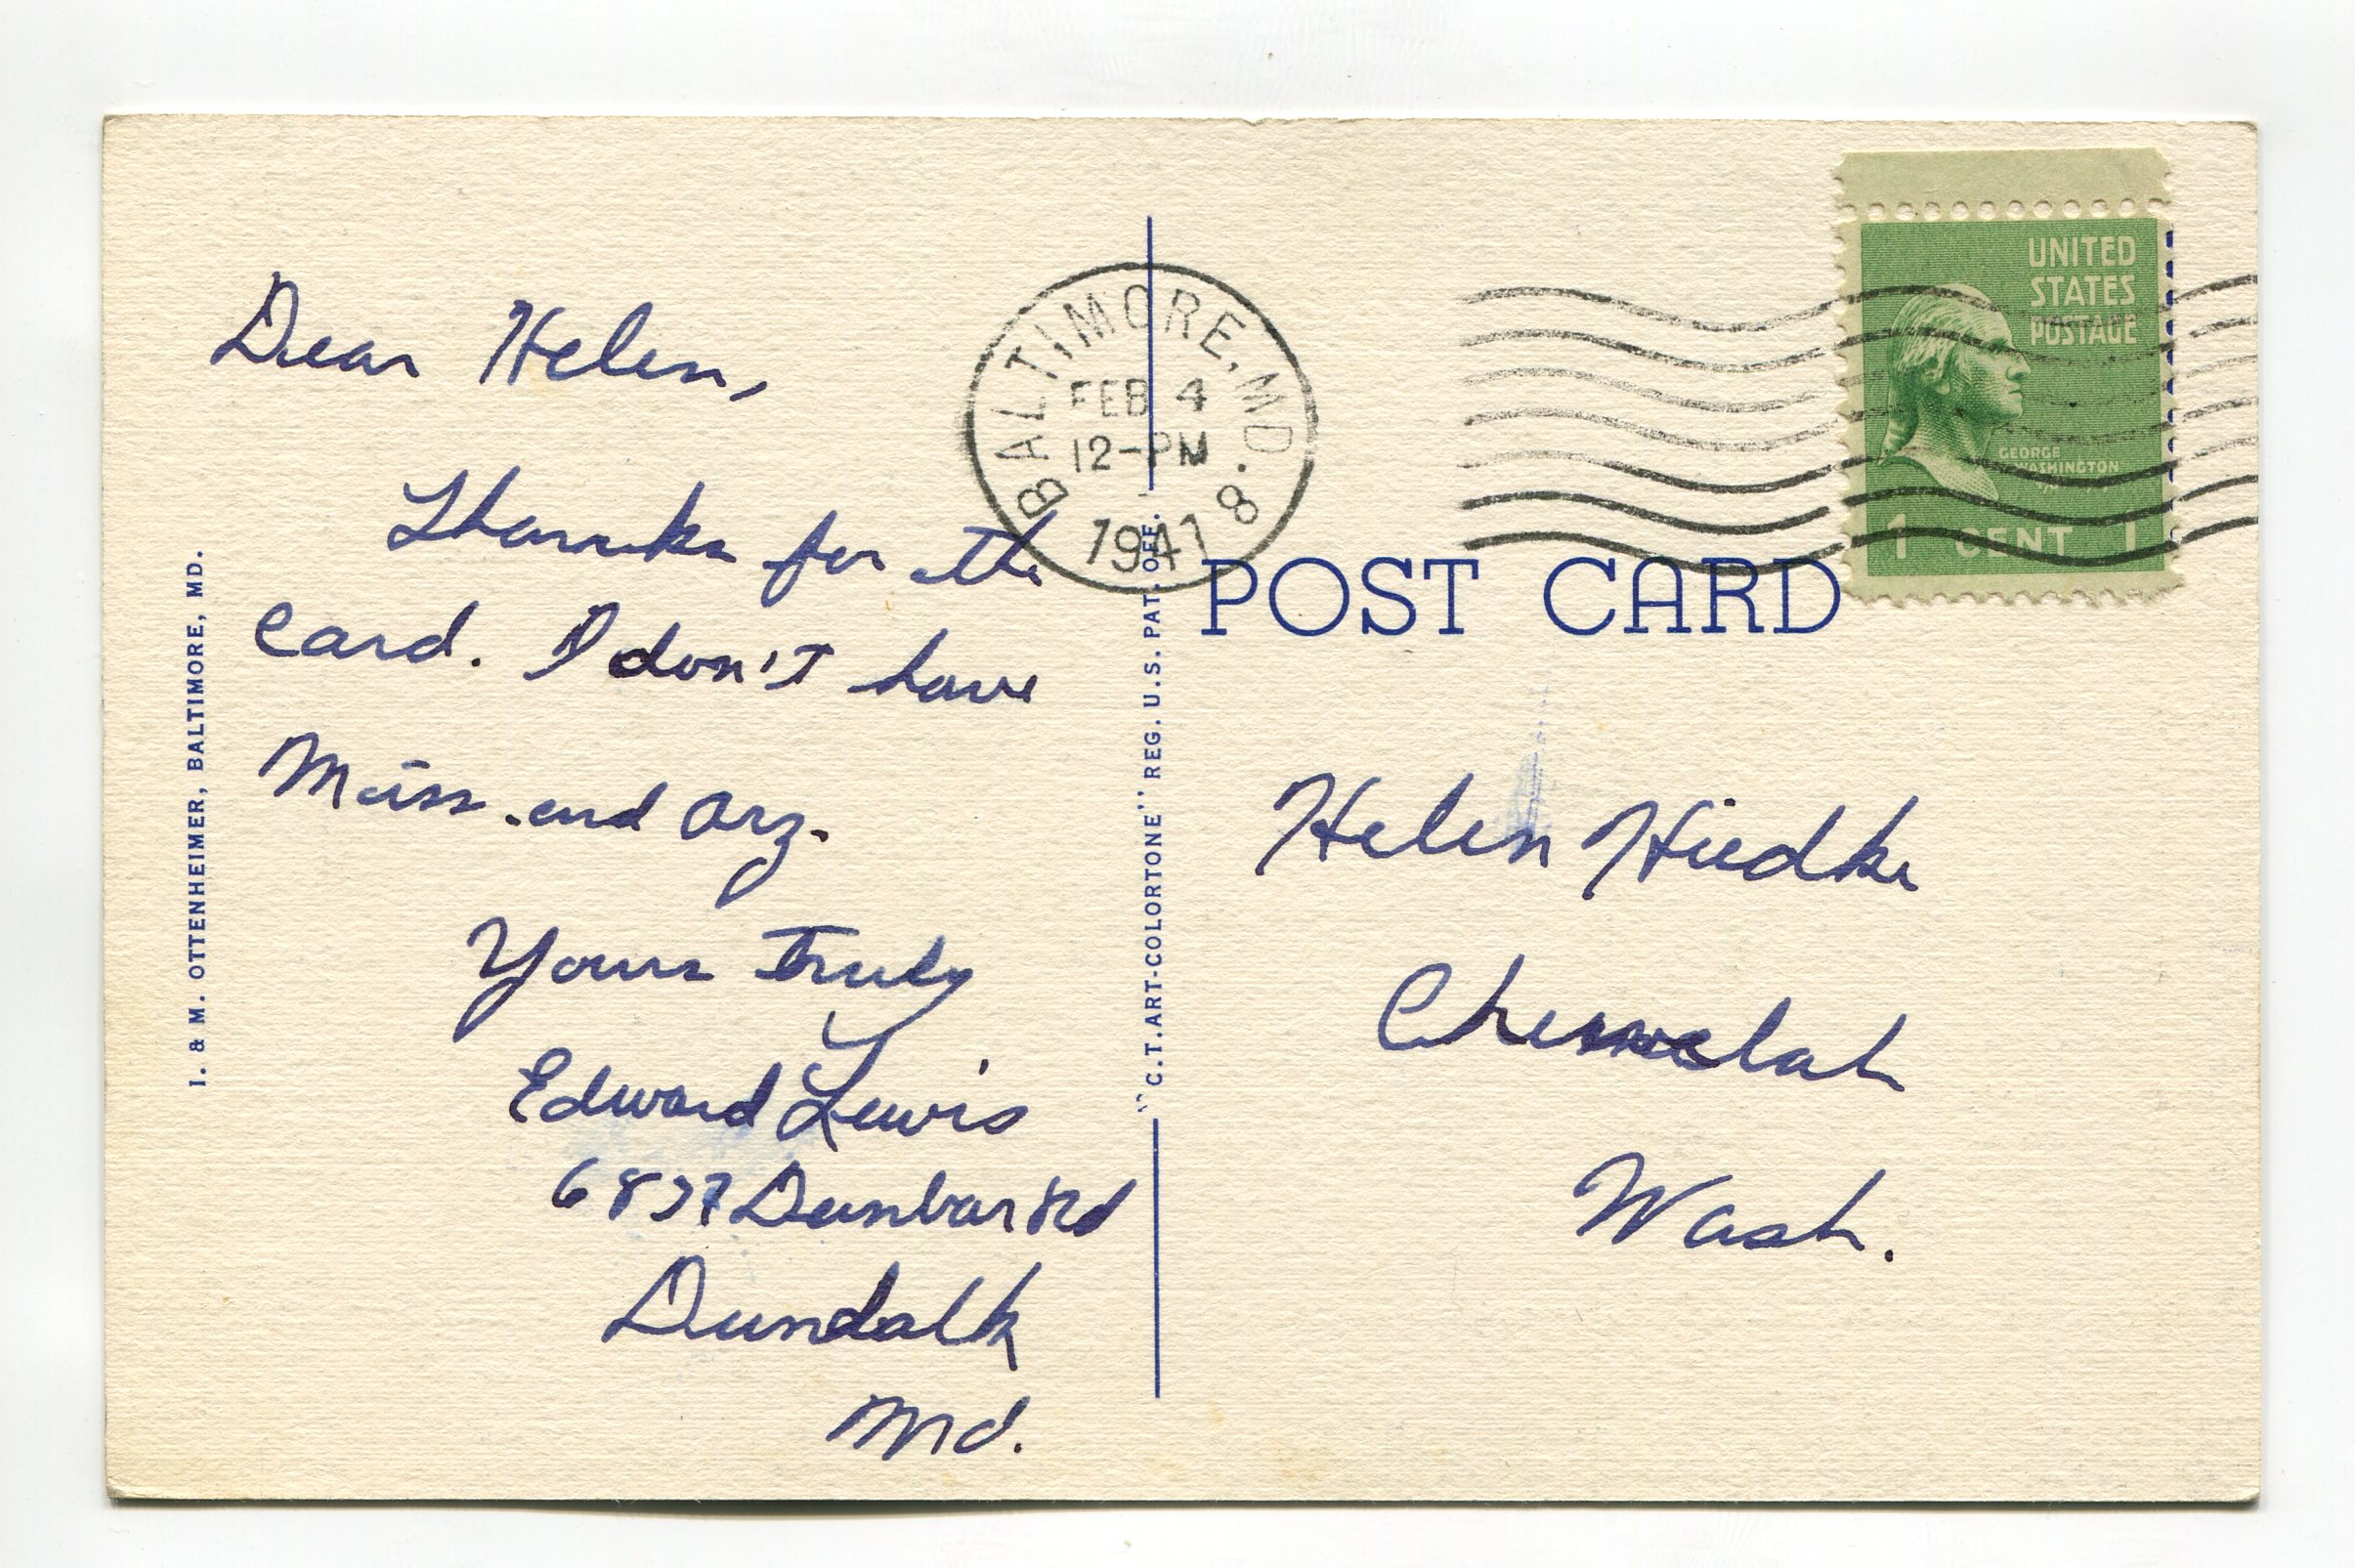 Dear Helen,
Thanks for the
card. I don't have
Miss. and Arz.
Yours Truly
Edward Lewis
Dunbar Rd
Dundalk
Md.
I. & M. OTTENHEIMER, BALTIMORE, MD.
"C.T. ART-COLORTONE" REG. U.S. PAT. OFF.
BALTIMORE, MD. 8
FEB 4
12-PM
1941
UNITED
STATES
POSTAGE
GEORGE
WASHINGTON
1 CENT 1
POST CARD
Helen
Wash.